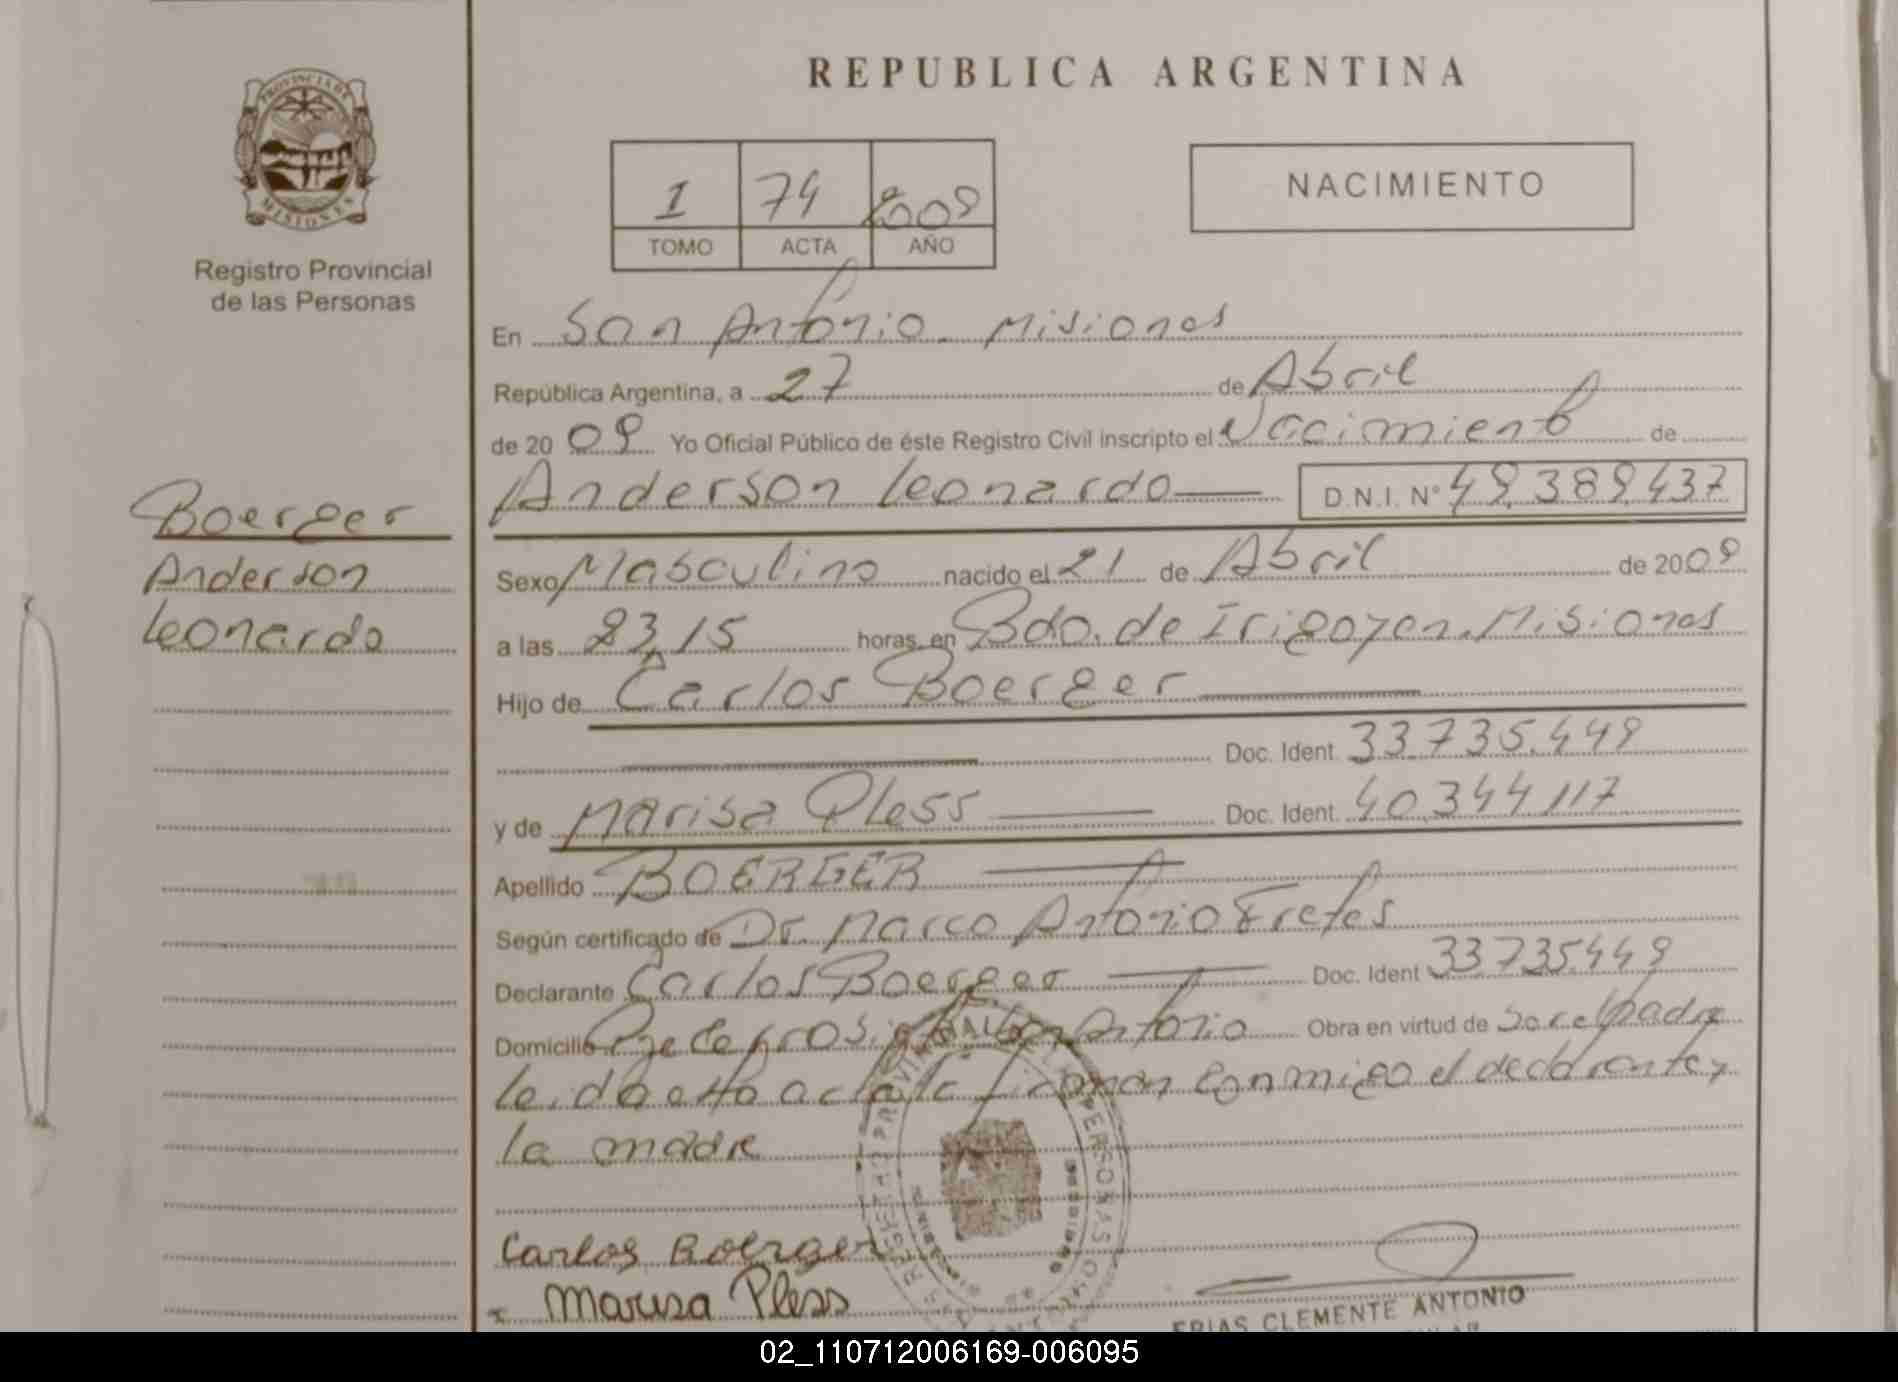 PROVINCIA DE
MISIONES
Registro Provincial
de las Personas
Boerger
Anderson
Leonardo
REPUBLICA ARGENTINA
I 74 2009
TOMO ACTA AÑO
NACIMIENTO
En San Antonio - Misiones
República Argentina, a 27 de Abril
de 2009 Yo Oficial Público de éste Registro Civil inscripto el Nacimiento de
Anderson Leonardo D.N.I. Nº 49.389.437
Sexo Masculino nacido el 21 de Abril de 2009
a las 23,15 horas, en Bdo. de Irigoyen. Misiones
Hijo de Carlos Boerger
Doc. Ident. 33.735.449
y de Marisa Pless Doc. Ident. 40.344.117
Apellido BOERGER
Según certificado de Dr. Marco Antonio Fretes
Declarante Carlos Boerger Doc. Ident 33735.449
Domicilio San Antonio Obra en virtud de ser el padre
leida esta acta la firman conmigo el declarante y
la madre
Carlos Boerger
Marisa Pless
FRIAS CLEMENTE ANTONIO
02_110712006169-006095